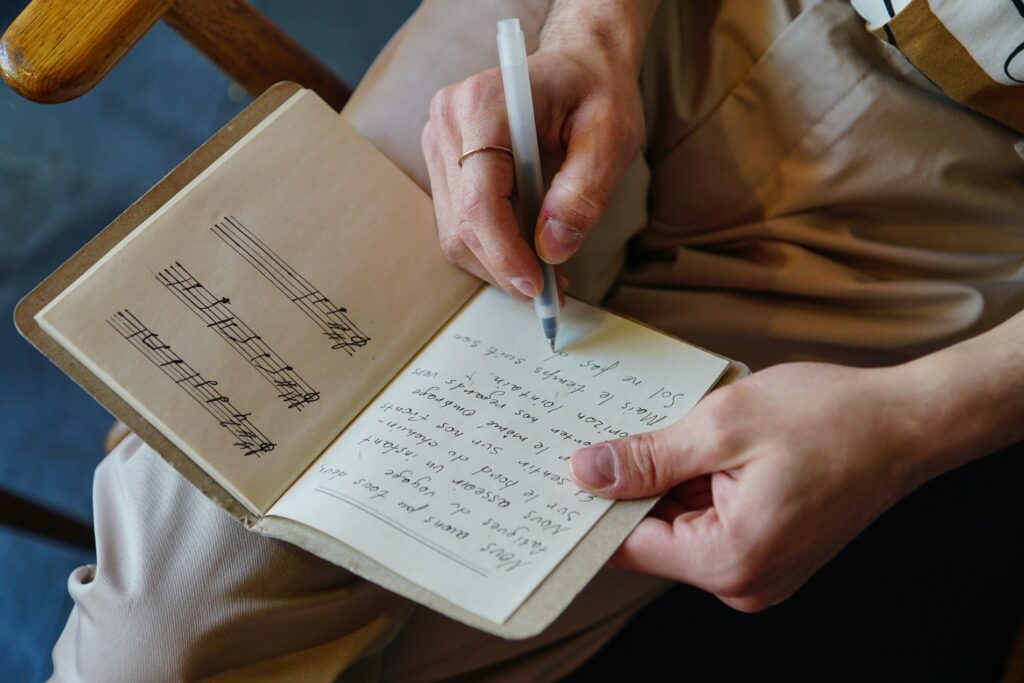 Nous auions pu tous deus
fatigues du voyage
Nous asseoir un instant
Sur le bord du chemin-
Et sentir sur nos fronts
le même ombrage
nos regards vers
lointain.-
Mais le temps suit son
ne pas